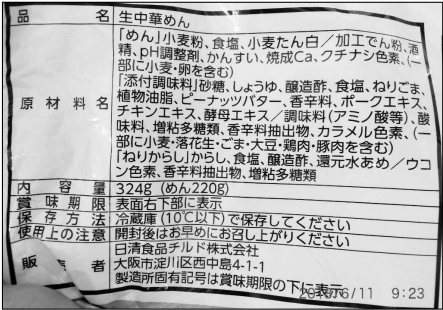 品名 生中華めん
「めん」小麦粉、食塩、小麦たん白／加工でん粉、酒
精、pH調整剤、かんすい、焼成Ca、クチナシ色素、（一
部に小麦・卵を含む）
原材料名 「添付調味料」砂糖、しょうゆ、醸造酢、食塩、ねりごま、
植物油脂、ピーナッツバター、香辛料、ポークエキス、
チキンエキス、酵母エキス／調味料（アミノ酸等）、酸
味料、増粘多糖類、香辛料抽出物、カラメル色素、（一
部に小麦・落花生・ごま・大豆・鶏肉・豚肉を含む）
「ねりからし」からし、食塩、醸造酢、還元水あめ／ウコ
ン色素、香辛料抽出物、増粘多糖類
内容量 324g（めん220g）
賞味期限 表面右下部に表示
保存方法 冷蔵庫（10℃以下）で保存してください
使用上の注意 開封後はお早めにお召し上がりください
販売者 日清食品チルド株式会社
大阪市淀川区西中島4-1-1
製造所固有記号は賞味期限の下に表示
6/11 9:23